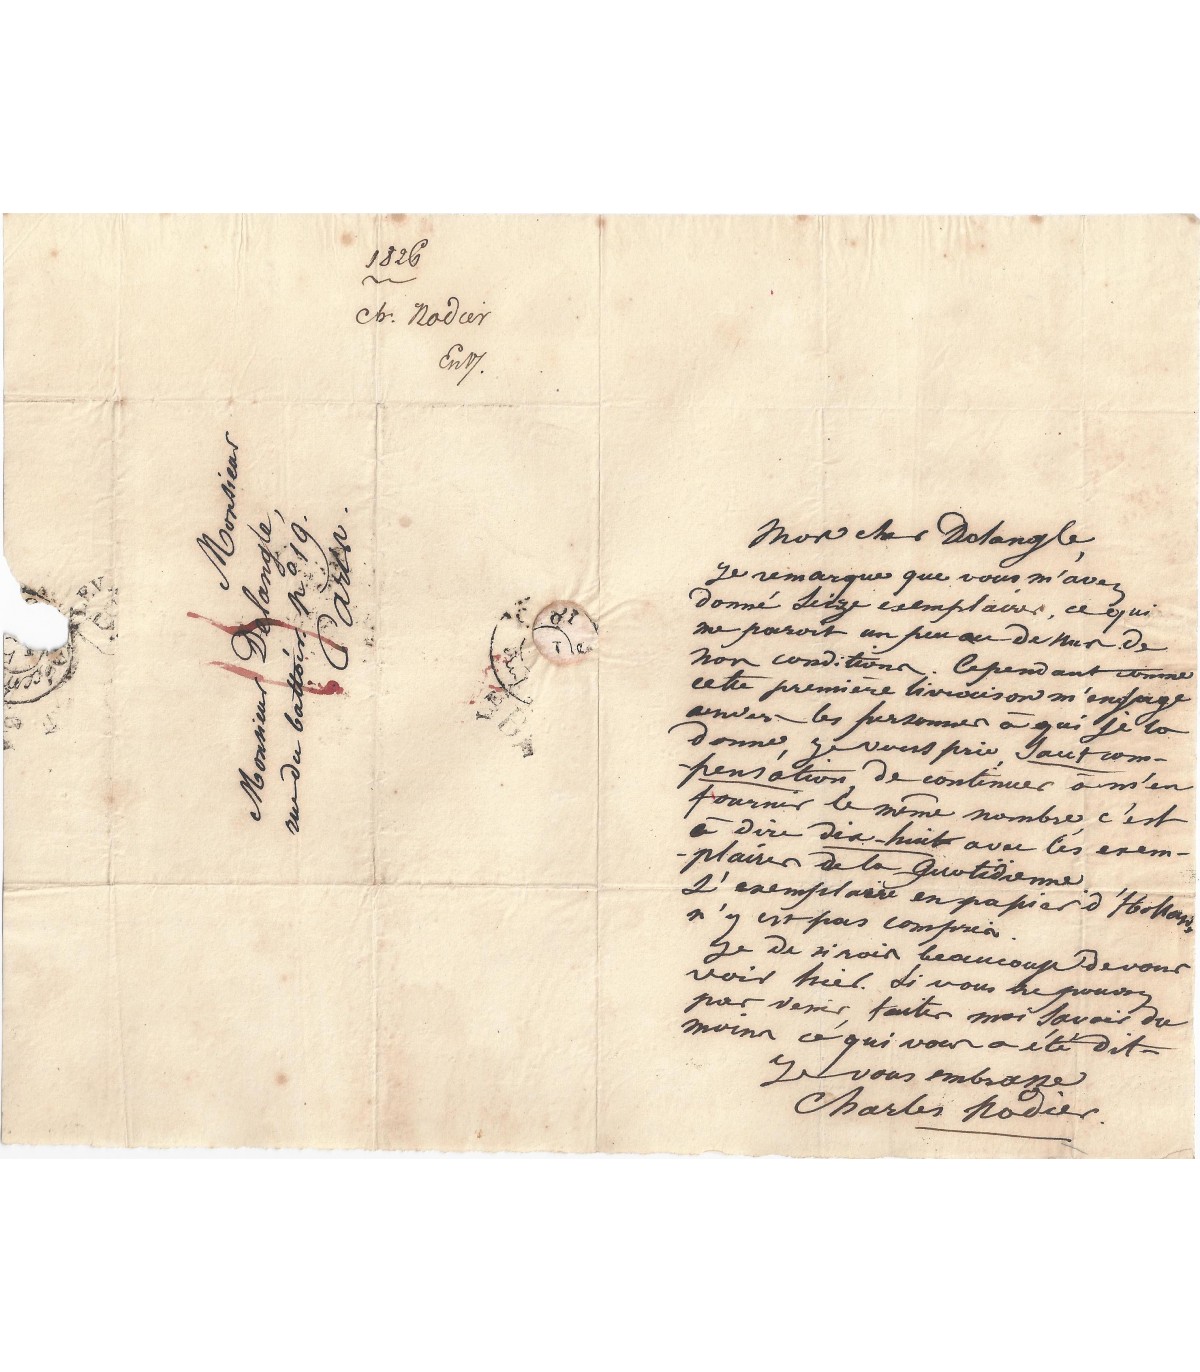 1826
Ch. Nodier
Monsieur
Monsieur Delangle,
rue du battoir n° 19.
Paris.
Mon cher Delangle,
je remarque que vous m'avez
donné Seize exemplaires, ce qui
me paroit un peu au dessus de
nos conditions. Cependant comme
cette première livraison m'engage
envers les personnes à qui je la
donne, je vous prie, Sauf com-
-pensation, de continuer à m'en
fournir le même nombre, c'est
à dire dix-huit avec les exem-
-plaires de la Quotidienne.
L'exemplaire en papier d'
n'y est pas compris.
je desirois beaucoup de vous
voir hier. Si vous ne pouvez
pas venir, faites moi Savoir du
moins ce qui vous a été dit-
je vous embrasse
Charles Nodier.